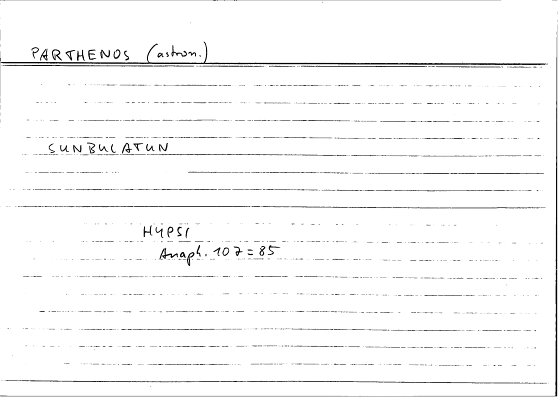 PARTHENOS (astron.)
SUNBULATUN
HYPSI
Anaph. 107=85